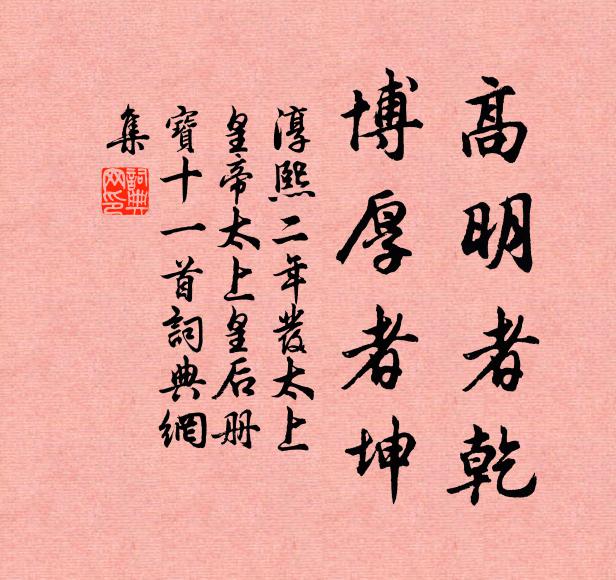 高明者乾
博厚者坤
淳熙二年發太上
皇帝太上皇后册
寶十一首詞典網
集
詞典網印